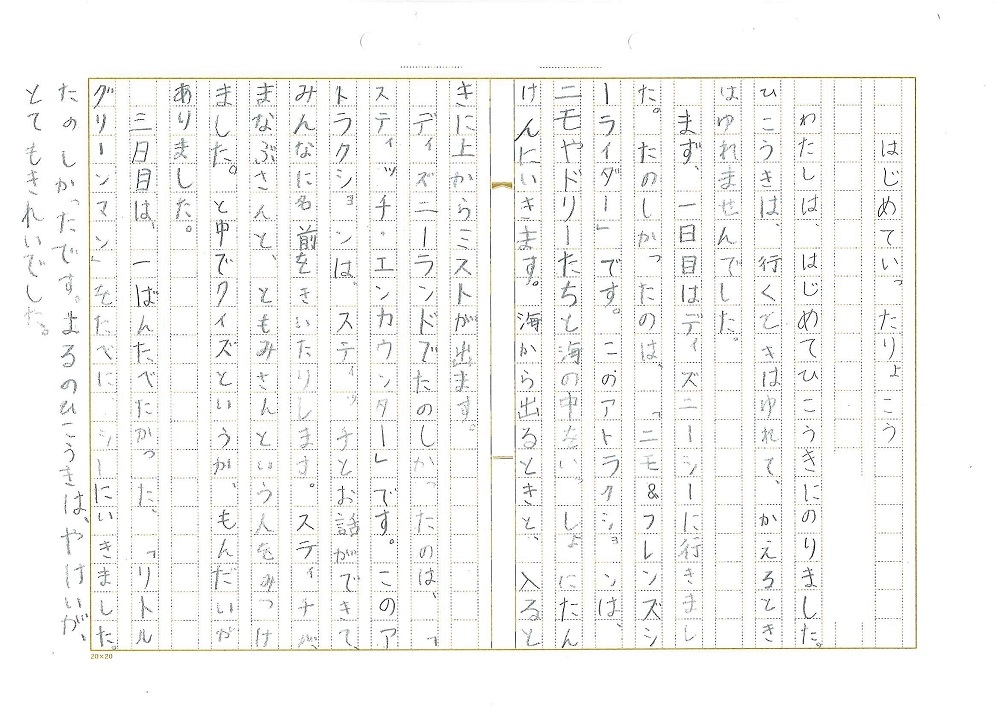 はじめていったりょこう
わたしは、はじめてひこうきにのりました。
ひこうきは、行くときはゆれて、かえるとき
はゆれませんでした。
まず、一日目はディズニーシーに行きまし
た。たのしかったのは、「ニモ&フレンズシ
ーライダー」です。このアトラクションは、
ニモやドリーたちと海の中をいっしょにたん
けんにいきます。海から出るときと、入ると
きに上からミストが出ます。
ディズニーランドでたのしかったのは、「
スティッチ・エンカウンター」です。このア
トラクションは、スティッチとお話ができて、
みんなに名前をきいたりします。スティチが、
まなぶさんと、ともみさんという人をみつけ
ました。と中でクイズというか、もんだいが
ありました。
三日目は、一ばんたべたかった、「リトル
グリーンマン」をたべに、シーにいきました。
たのしかったです。よるのひこうきは、やけいが、
とてもきれいでした。
20×20